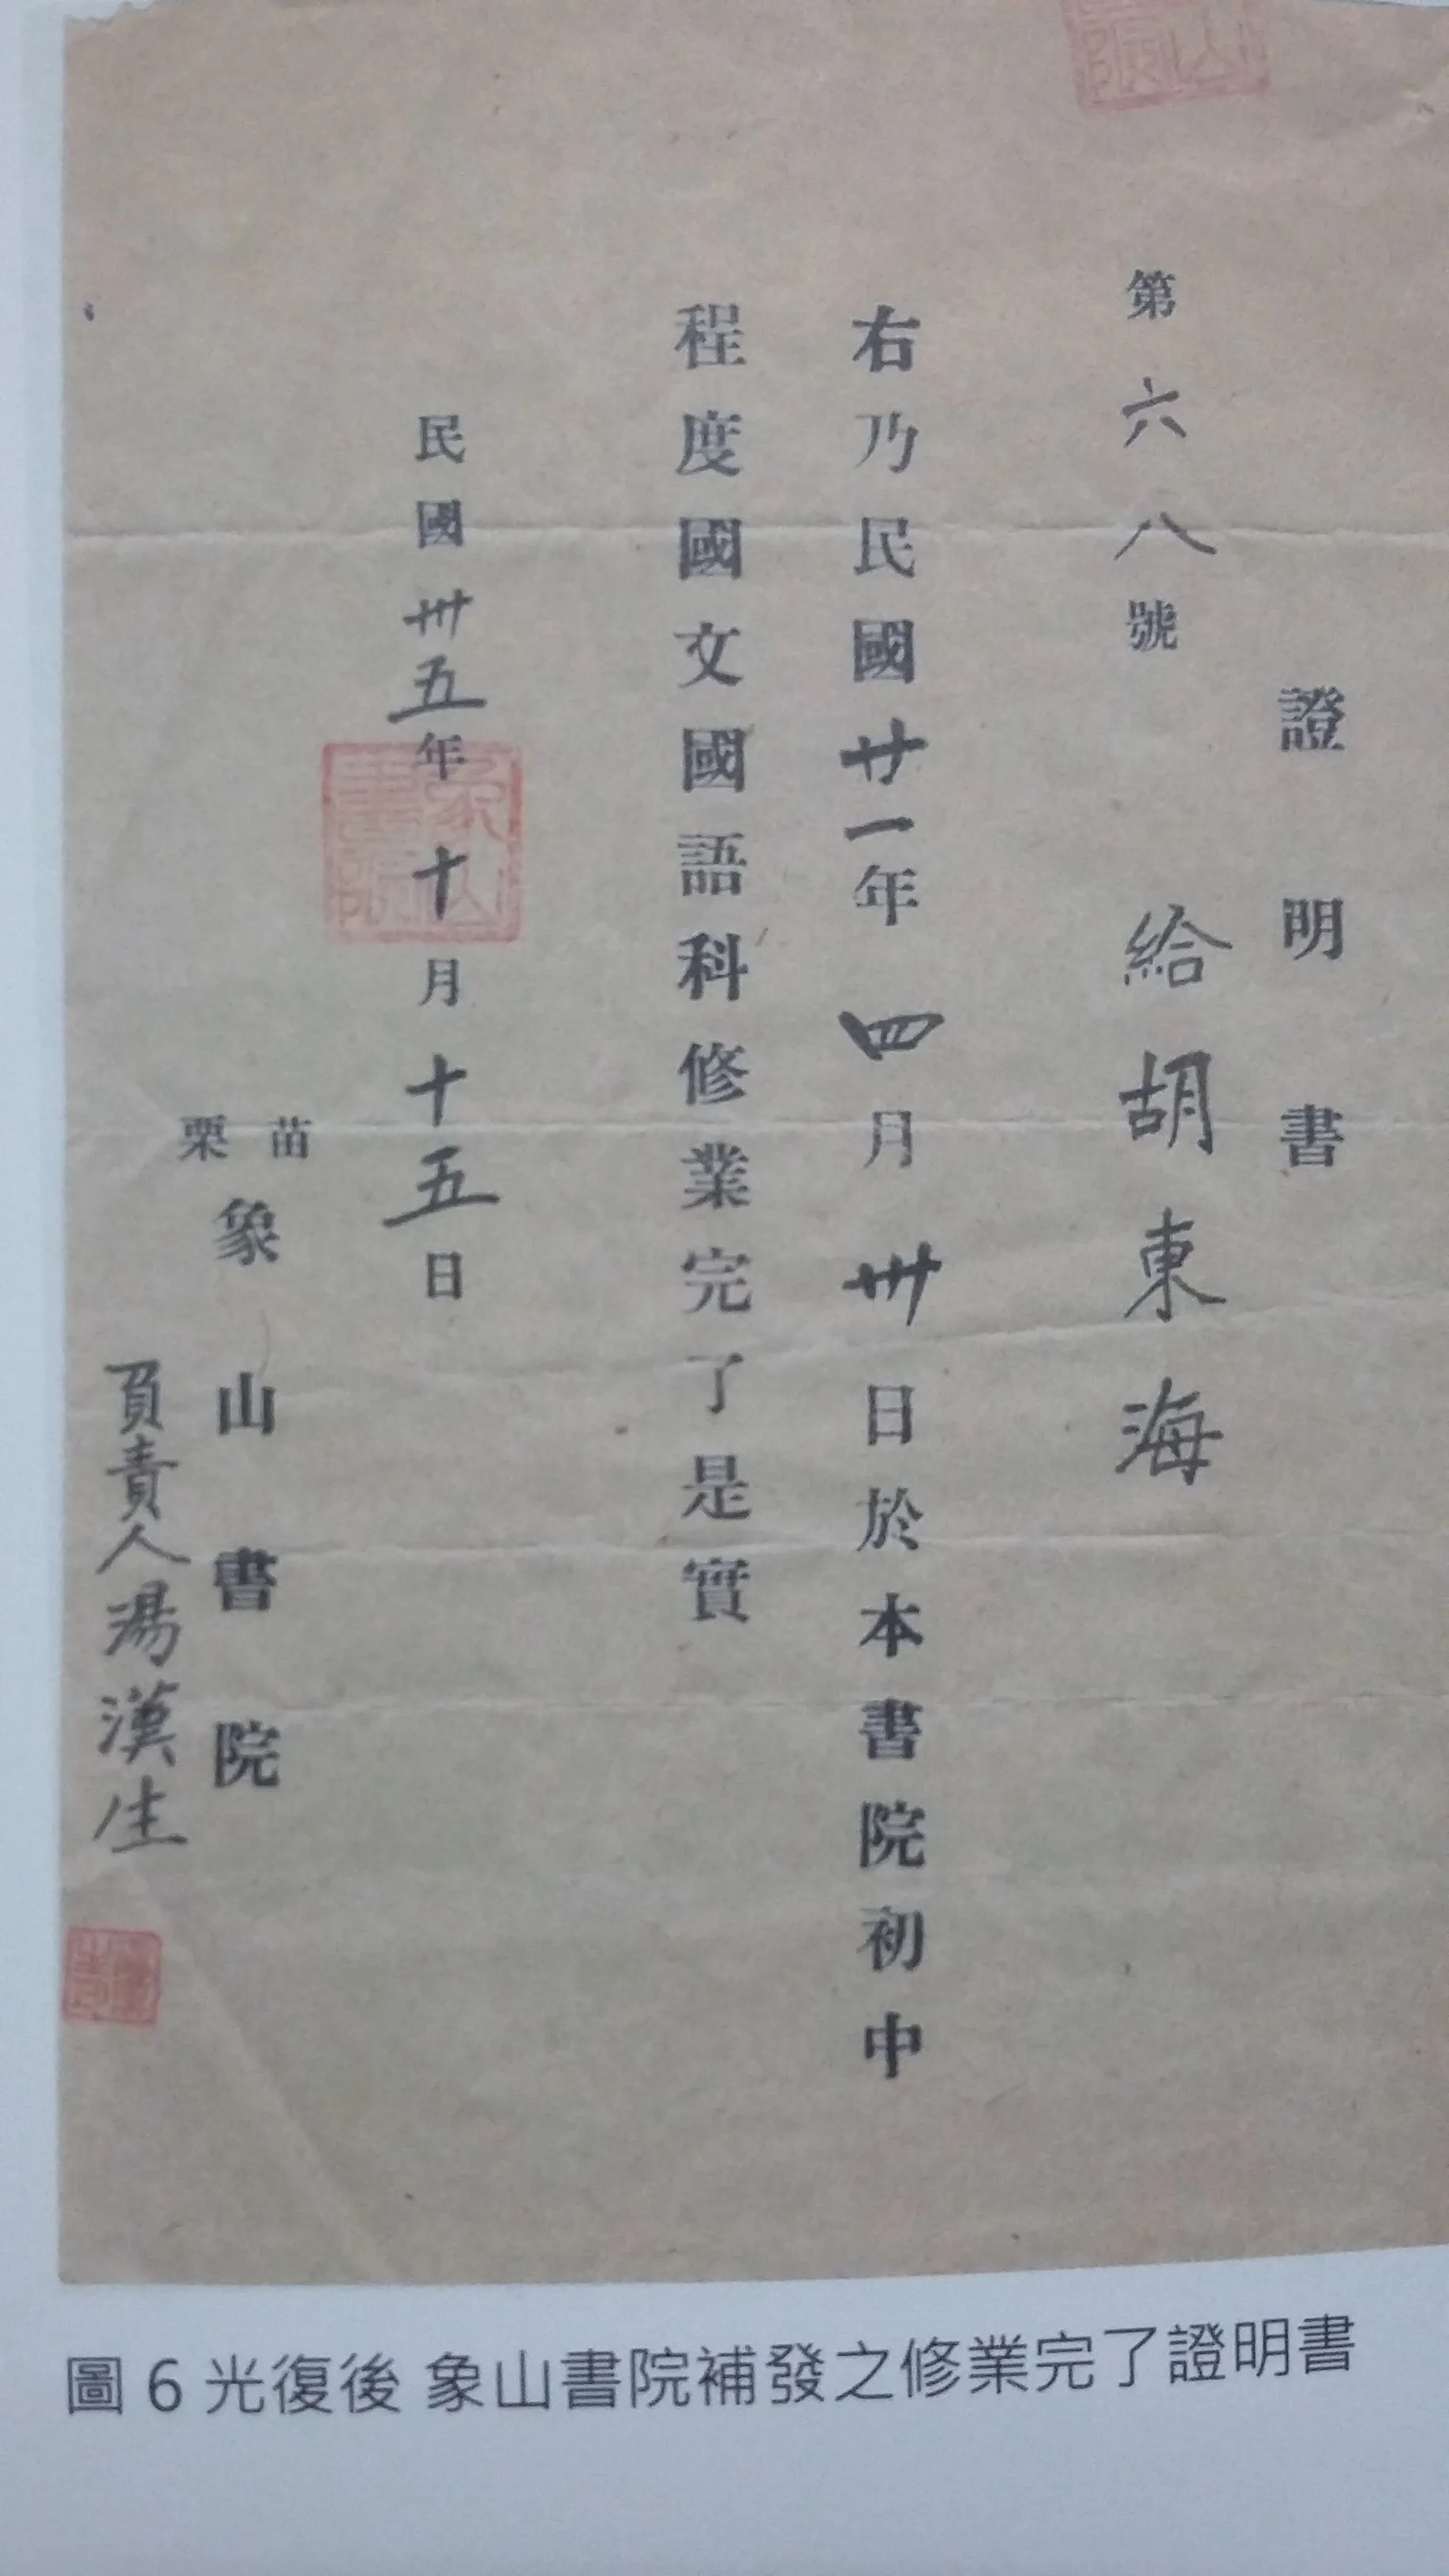 證明書
第六八號 給胡東海
右乃民國廿一年四月卅日於本書院初中
程度國文國語科修業完了是實
民國卅五年十月十五日
苗栗象山書院
負責人湯漢生
象山書院
圖6光復後 象山書院補發之修業完了證明書